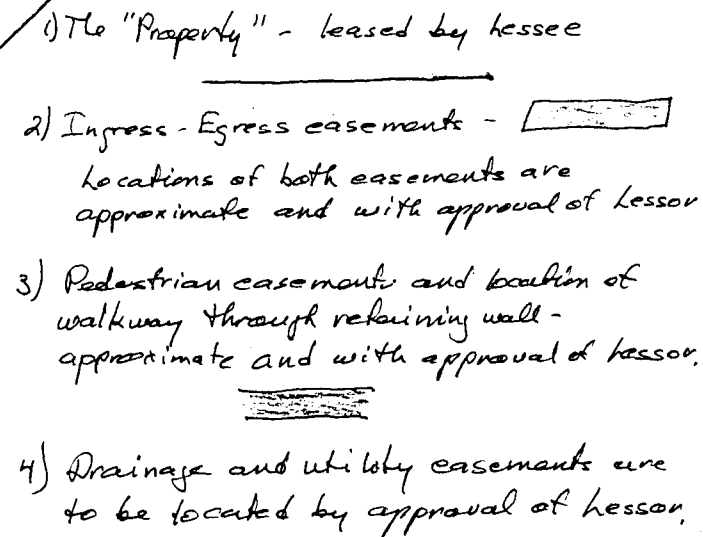 1) The "Property" - leased by Lessee
2) Ingress - Egress easements -
Locations of both easements are
approximate and with approval of Lessor
3) Pedestrian easements and location of
walkway through retaining wall -
approximate and with approval of Lessor.
4) Drainage and utility easements are
to be located by approval of Lessor.